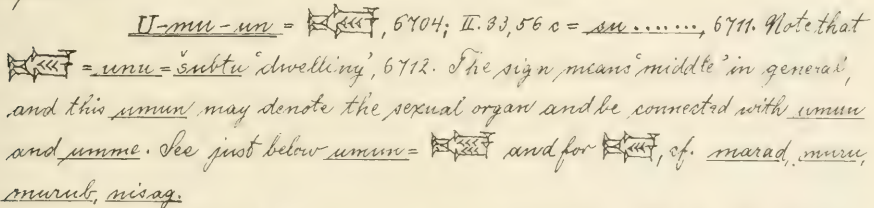 U-mu-un = , 6704; II. 33, 56 c = su ........, 6711. Note that
= unu = šubtu 'dwelling', 6712. The sign means 'middle' in general,
and this umun may denote the sexual organ and be connected with umun
and umme. See just below umun = and for , cf. marad, muru,
murub, nisag.